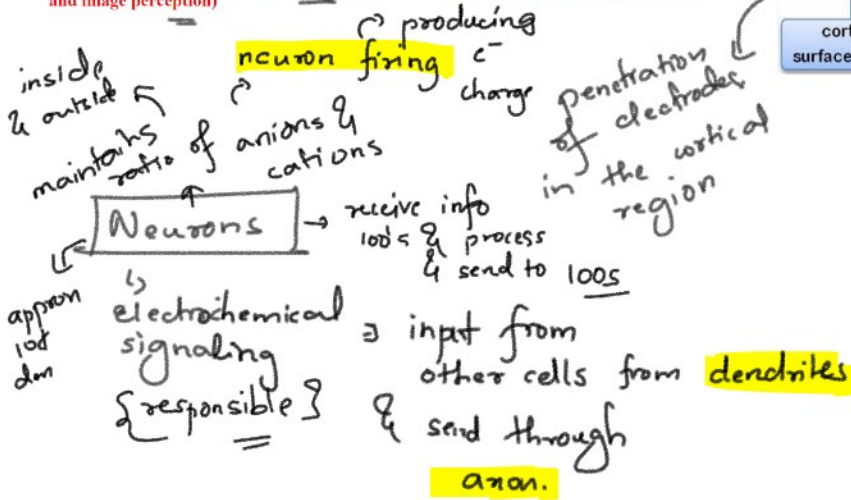 and image perception)
producing
e⁻
charge
neuron firing
inside
& outside
maintains
ratio of anions &
cations
penetration
of electrodes
in the cortical
region
surface
Neurons
→ receive info
100's & process
& send to 100s
approx
electrochemical
signaling
{responsible}
input from
other cells from dendrites
& send through
axon.